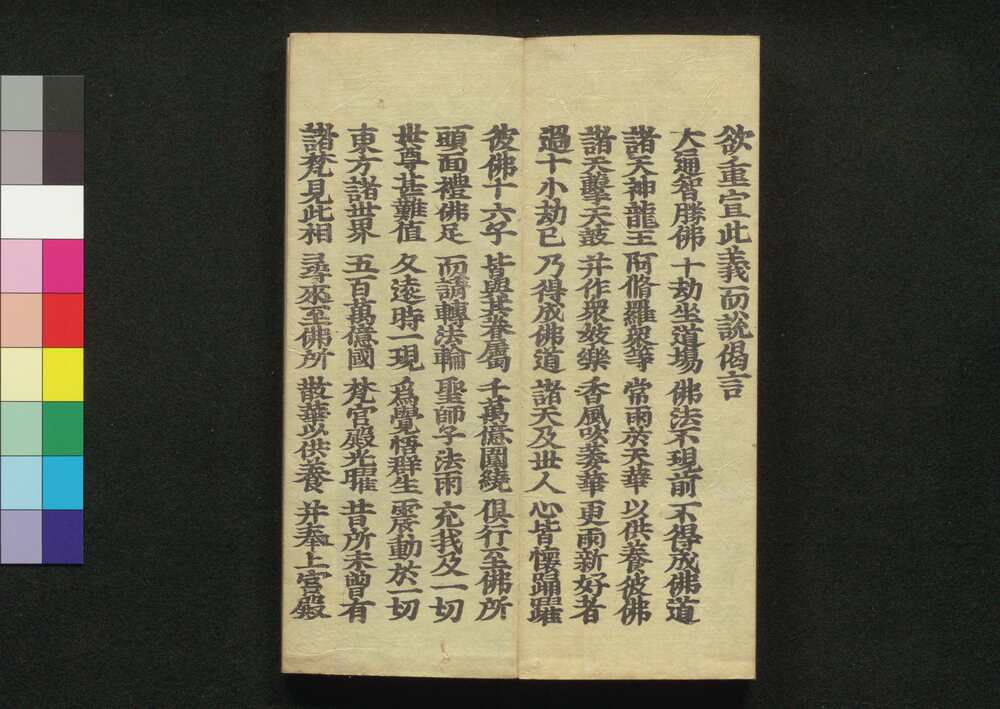 欲重宣此義而說偈言
大通智勝佛 十劫坐道場 佛法不現前 不得成佛道
諸天神龍王 阿脩羅衆等 常雨於天華 以供養彼佛
諸天擊天鼓 并作衆妓樂 香風吹萎華 更雨新好者
過十小劫已 乃得成佛道 諸天及世人 心皆懷踊躍
彼佛十六子 皆與其眷屬 千萬億圍繞 俱行至佛所
頭面禮佛足 而請轉法輪 聖師子法雨 充我及一切
世尊甚難值 久遠時一現 爲覺悟群生 震動於一切
東方諸世界 五百萬億國 梵宮殿光曜 昔所未曾有
諸梵見此相 尋來至佛所 散華以供養 并奉上宮殿